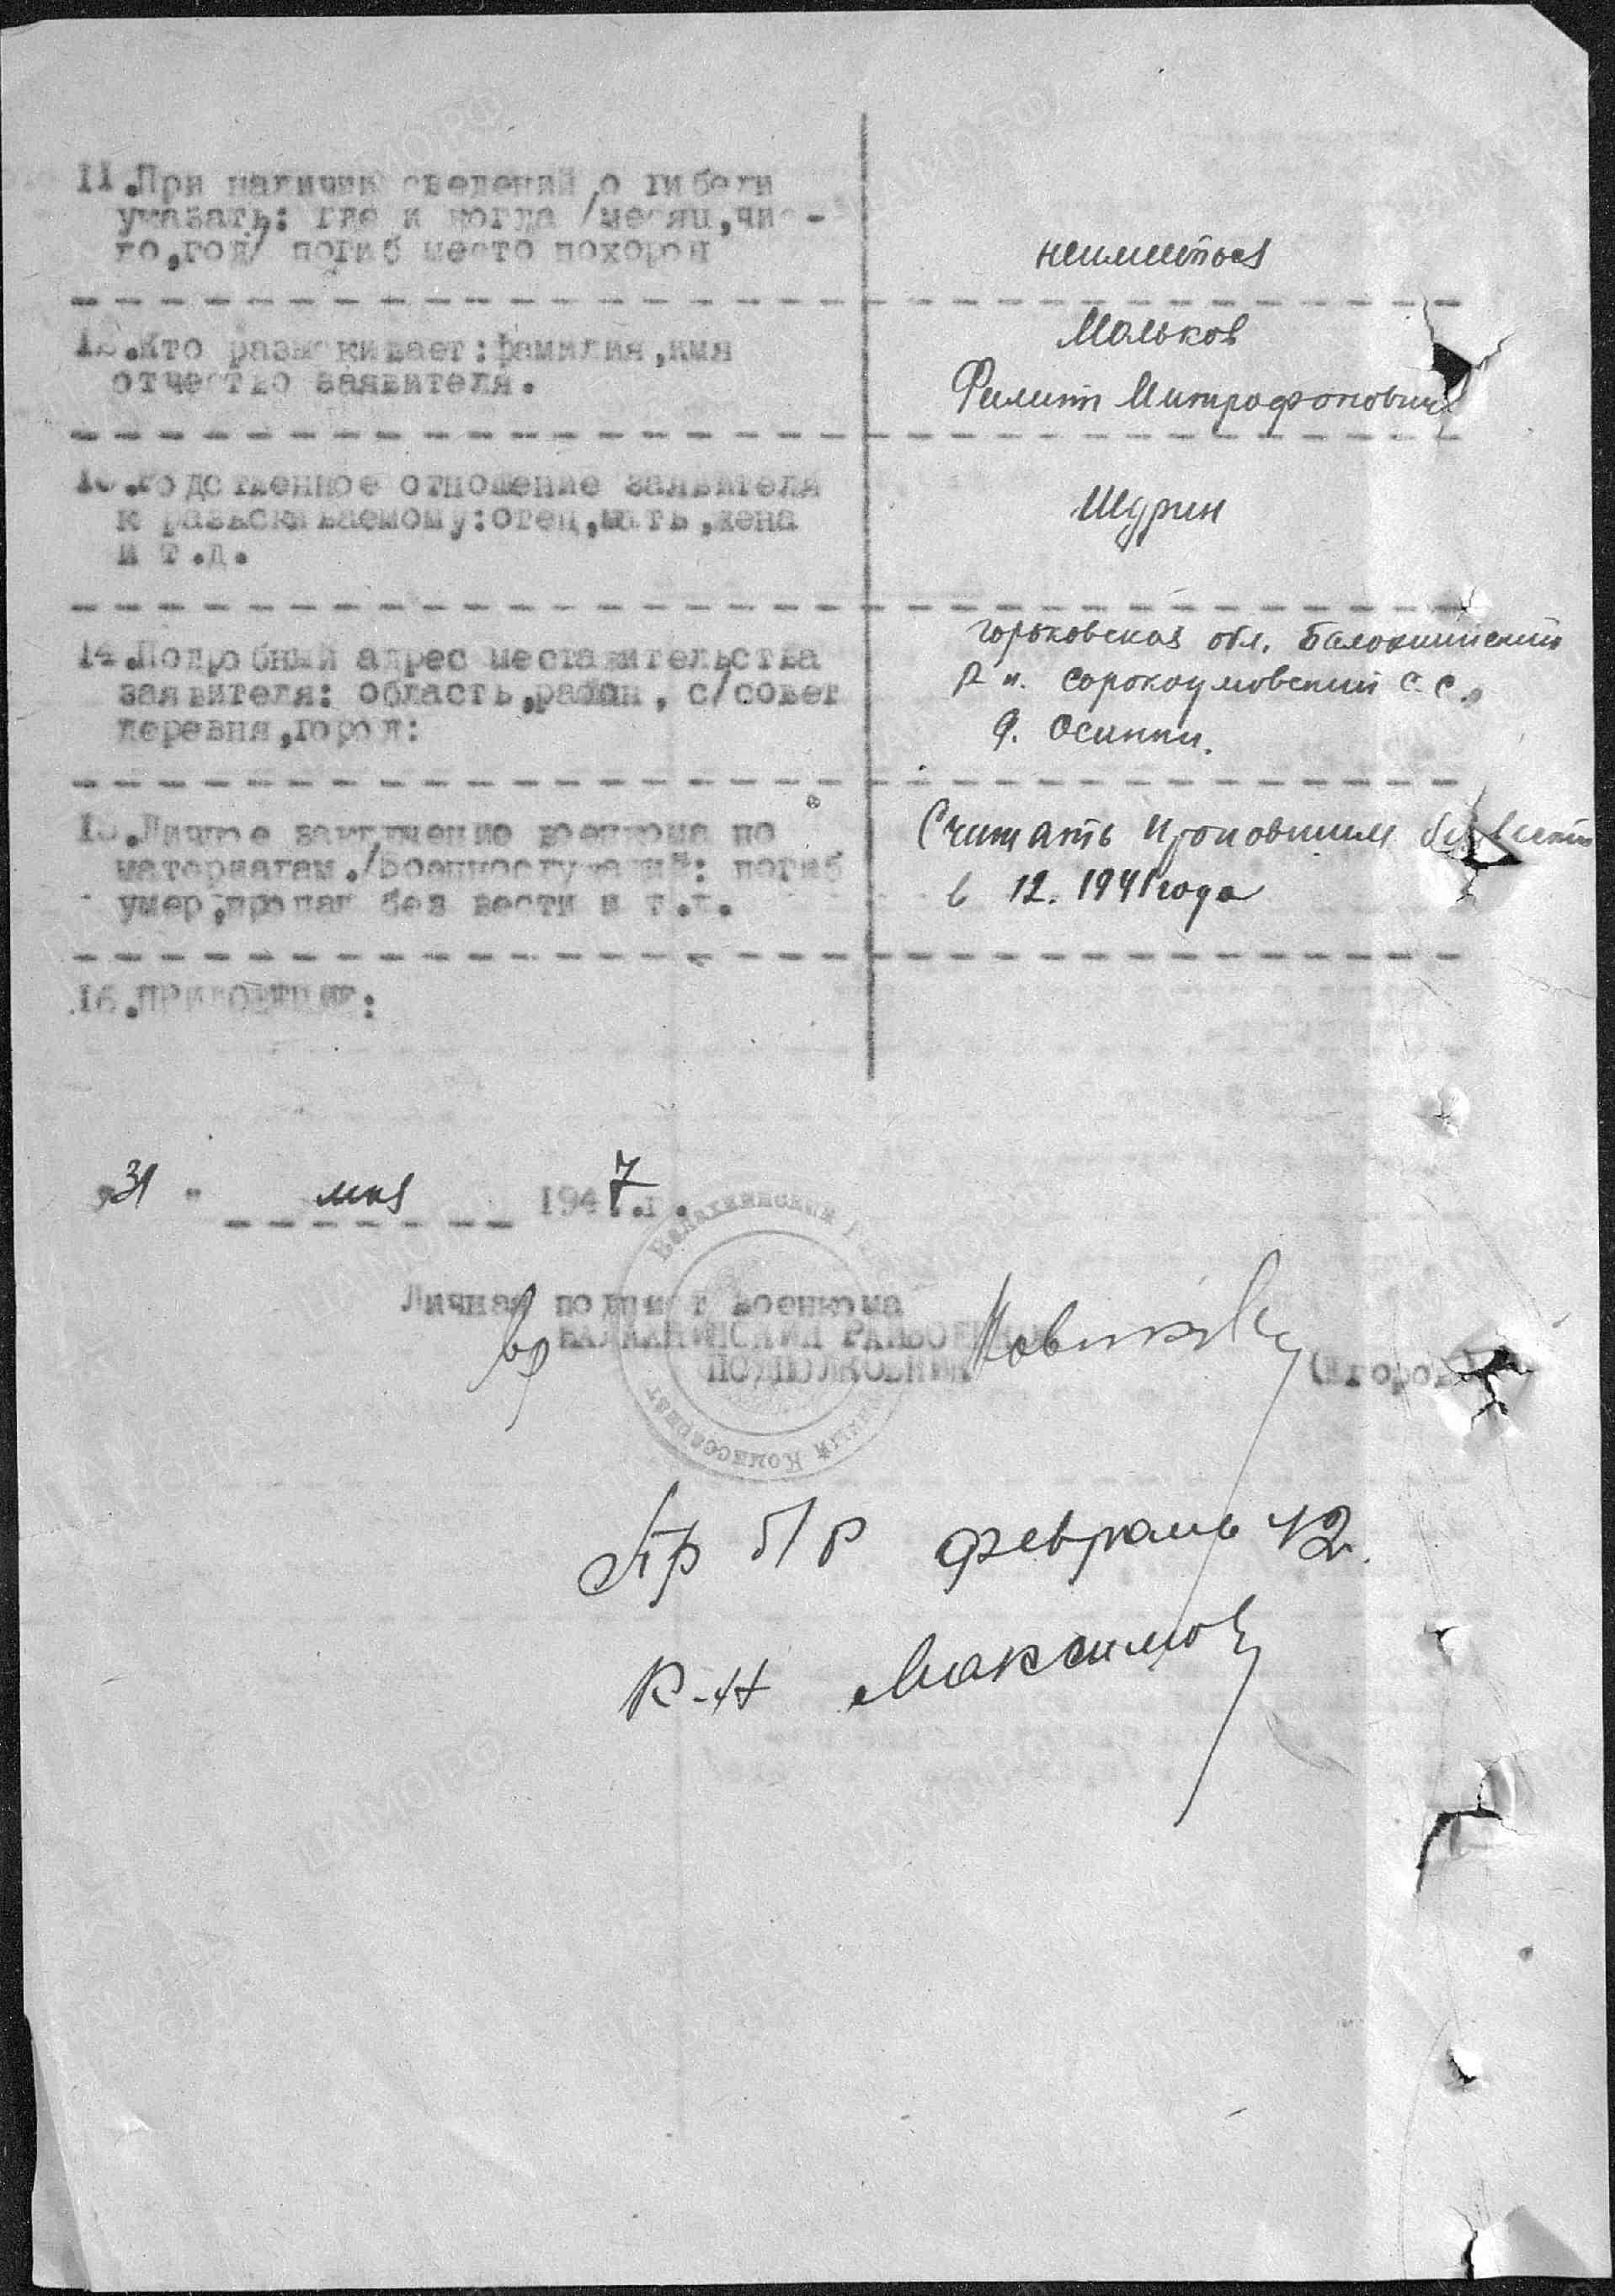 11.При наличии сведений о гибели
указать: где и когда /месяц,чис-
ло,год/ погиб место похорон
неиметься
12.Кто разыскивает:фамилия,имя
отчество заявителя.
Мальков
Филипп Митрофанович
13.Родственное отношение заявителя
к разыскиваемому:отец,мать,жена
и т.д.
Шурин
14.Подробный адрес местажительства
заявителя: область,район, с/совет
деревня,город:
Горьковская обл. Балахнинский
р н. Сорокоумовский с.с.
д. Осинки.
15.Личное заключение военкома по
материалам./Военнослужащий: погиб
умер,пропал без вести и т.д.
Считать пропавшим без вести
в 12. 1941 года
16.ПРИЛОЖЕНИЕ:
"31" мая 1947.г.
Личная подпись военкома
Вр БАЛАХНИНСКИЙ РАЙВОЕНКОМ
ПОДПОЛКОВНИК Новиков (Егоров)
Балахнинский Комиссариат
Пр б/в февраль 42.
К-н Максимов